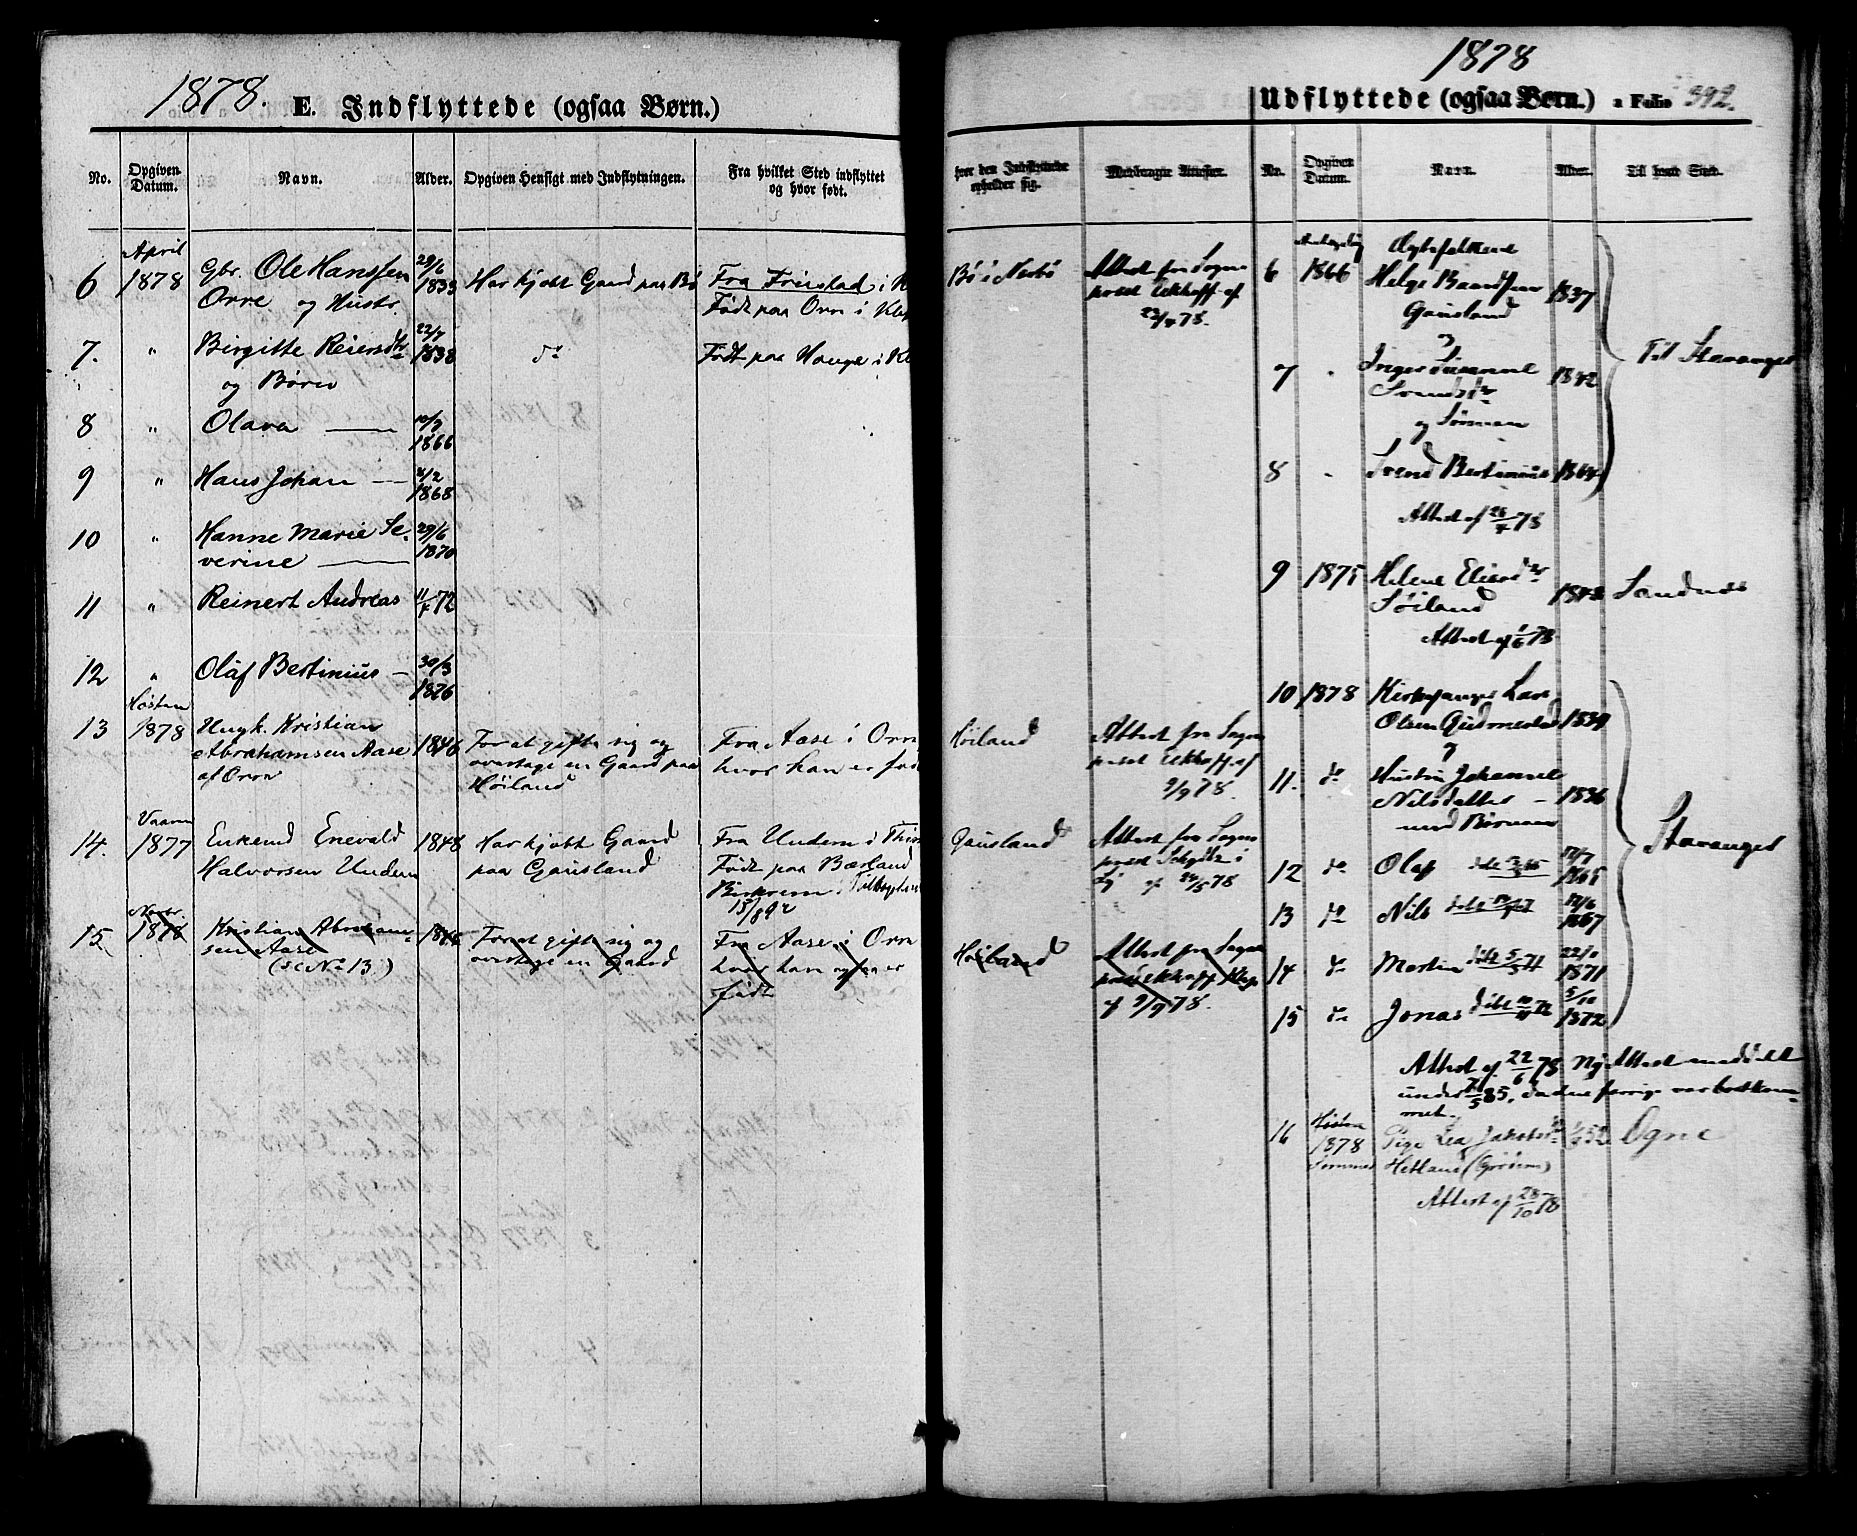 1878.
E. Indflyttede (ogsaa Børn.)
No.
Opgiven Datum.
Navn.
Alder.
Opgiven Hensigt med Indflytningen.
Fra hvilket Sted indflyttet og hvor født.
April
6 1878 Gbr. Ole Hanssen 29/6 1833 Har kjøbt Gaard paa Bø Fra Friestad i
Orre og Hustr. Født paa Orre i
7. " Birgitte Reiersdtr 22/7 1838 do Født paa Hauge i
og Børn
8 " Olava 1866
9 " Hans Johan 1868
10 " Hanne Marie Se- 29/6 1870
verine
11 " Reinert Andreas 11/7 72
12 " Olaf Bertinius 30/3 1876
Høsten
13 1878 Ungk. Kristian 1846 For at gifte sig og Fra Aase i Orre
Abrahamsen Aase overtage en Gaard paa hvor han er født
af Orre Høiland
Vaaren
14. 1877 Enkemd Enevald 1848 Har kjøbt Gaard Fra Undem i
Halvorsen Undem paa Gausland Født paa Bærland
15 1878 Kristian Abraham- 1846 For at gifte sig og Fra Aase i Orre
sen Aase overtage en Gaard hvor han er
(se No 13) født
1878
Udflyttede (ogsaa Børn.) a Folio 392.
hvor den Indflyttede opholder sig.
Medbragte Attester.
No.
Opgiven Datum.
Navn.
Alder.
Til hvad Sted.
Bø i Nærbø Attest fra Sogne
præst Eckhoff af
23/4 78.
Høiland Attest fra Sogne
præst Eckhoff af
9/9 78.
Gausland Attest fra Sogne
præst i
af 24/5 78
Høiland Attest fra Sogne
præst Eckhoff Klep
af 9/9 78.
Ægtefolkene
6 1866 Helge Baardsen 1837
Gausland
7 Inger Susanne 1842 Til Stavanger
Svendsdr
og Sønnen
8 Svend Bertinius 1864
Attest af 26/4 78
9 1875 Helene Eliasdr 1848 Sandnæs
Søiland
Attest af 1/6 78
10 1878 Kirkesanger Lars
Olsen Gudmestad 1839
11. do Hustru Johanne
Nilsdatter 1836
med Børnene Stavanger
12 do Olaf 1865
13 do Nils 1867
14 do Martin 1871
15 do Jonas 5/10 1872
Attest af 22/6 78 Ny Attest meddelt
under 7/5 85, da den forrige var bortkom-
met.
Høsten
16 1878 Pige Lea 52 Ogne
Sommer Hetland
Attest af 28/10 78